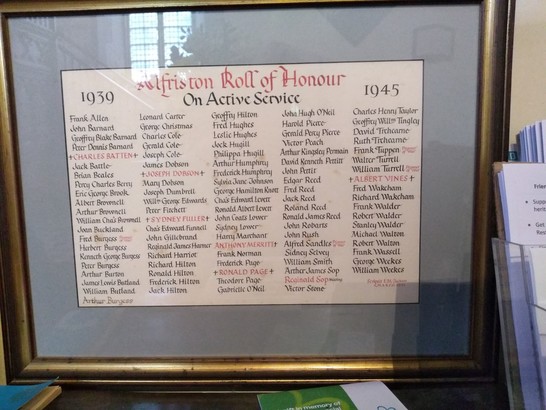 Alfriston Roll of Honour
1939
On Active Service
1945
Frank Allen
John Barnard
Geoffry Blake Barnard
Peter Dennis Barnard
+CHARLES BATTEN+
Jack Battle
Brian Beales
Percy Charles Berry
Eric George Brook
Albert Brownell
Arthur Brownell
William Chas Brownell
Joan Buckland
Fred Burgess
Herbert Burgess
Kenneth George Burgess
Peter Burgess
Arthur Burton
James Louis Butland
William Butland
Arthur Burgess
Leonard Carter
George Christmas
Charles Cole
Gerald Cole
Joseph Cole
James Dobson
+JOSEPH DOBSON+
Mary Dobson
Joseph Dumbrell
Willm George Edwards
Peter Fitchett
+SYDNEY FULLER+
Chas Edward Funnell
John Gillebrand
Reginald James Harmer
Richard Harriott
Richard Hilton
Ronald Hilton
Frederick Hilton
Jack Hilton
Geoffry Hilton
Fred Hughes
Leslie Hughes
Jock Hugill
Philippa Hugill
Arthur Humphry
Frederick Humphry
Sylvia Jane Johnson
George Hamilton Knott
Chas Edward Levett
Ronald Albert Levett
John Coats Lower
Sydney Lower
Harry Marchant
ANTHONY MERRITT+
Frank Norman
Frederick Page
+RONALD PAGE+
Theodore Page
Gabrielle O'Neil
John Hugh O'Neil
Harold Pierce
Gerald Percy Pierce
Victor Peach
Arthur Kingsley Permain
David Kenneth Pettitt
John Pettit
Edgar Reed
Fred Reed
Jack Reed
Roland Reed
Ronald James Reed
John Roberts
John Rush
Alfred Sandles
Sidney Selvey
William Smith
Arther James Sop
Reginald Sop Missing
Victor Stone
Charles Henry Taylor
Geoffry Willm Tingley
David Trehearne
Ruth Trehearne
Frank Tuppen
Walter Turrell
William Turrell
+ALBERT VINES+
Fred Wakeham
Richard Wakeham
Frank Walder
Robert Walder
Stanley Walder
Michael Walton
Robert Walton
Frank Wassell
George Weekes
William Weekes
in memory of